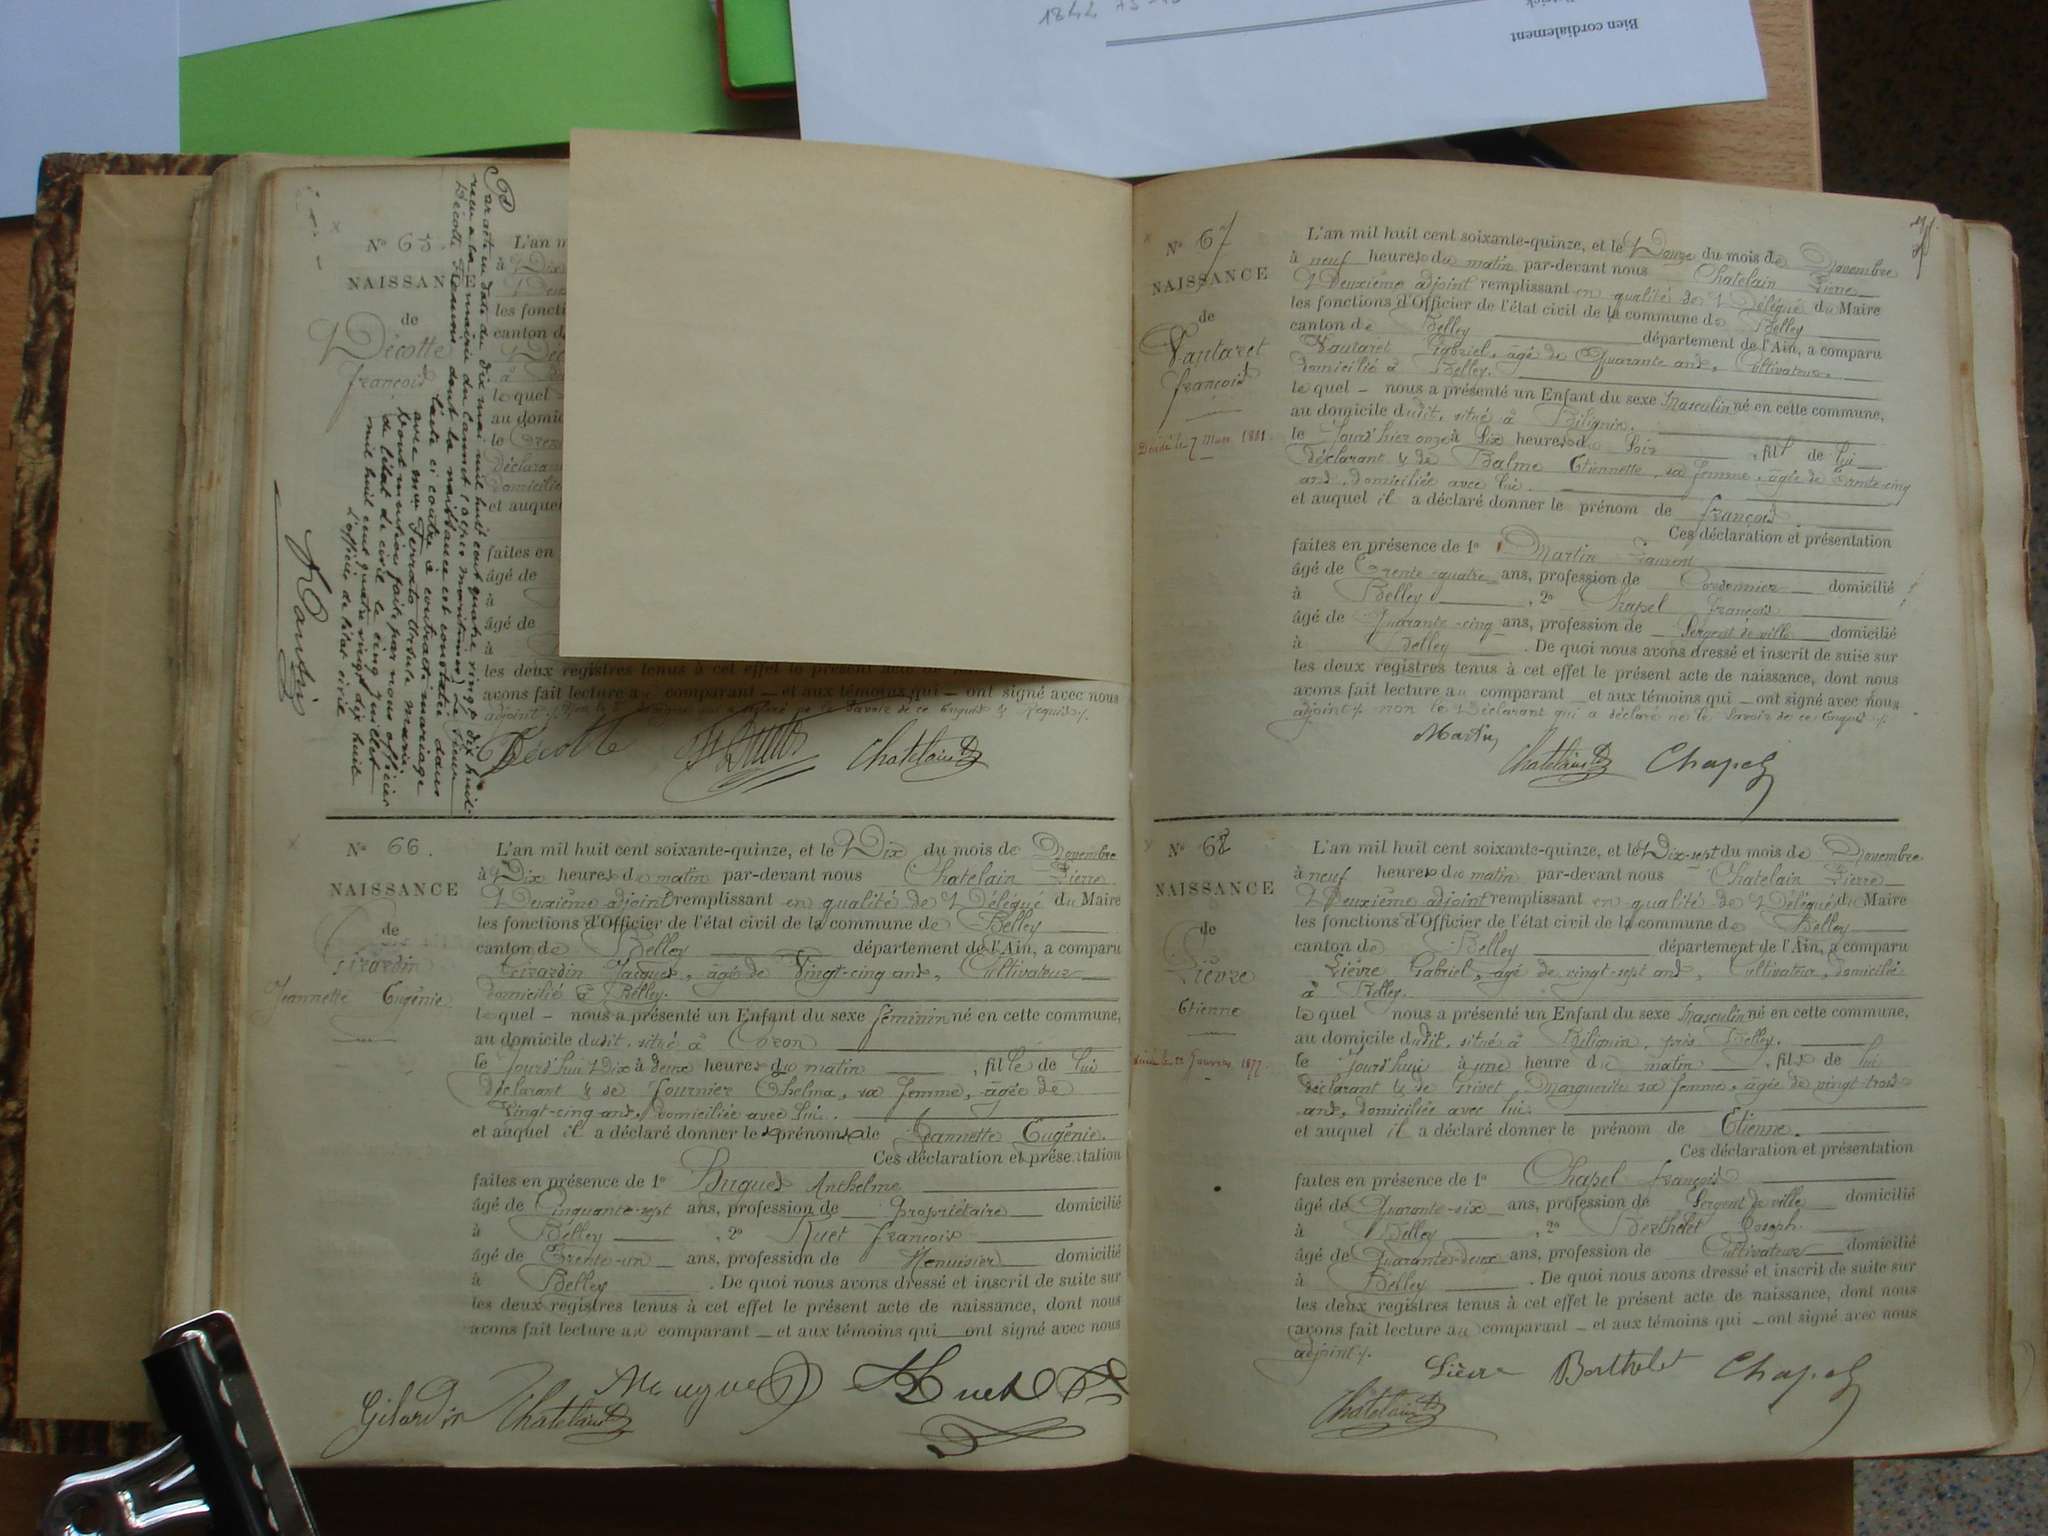 Bien cordialement
N° 65.
NAISSANCE
de
Décotte
françois
Par acte en date du dix mai mil huit cent quatre vingt dix huit
reçu à la mairie du
Décotte françois dont la naissance est constatée dans
l'acte ci contre à contracté mariage
avec
Dont mention faite par nous officier
de l'état de civil le cinq juillet
mil huit cent quatre vingt dix huit
L'officier de l'état civil
L'an m
les foncti
canton d
le quel
au domic
le
déclara
domicilié
et auque
faites en
âgé de
à
âgé de
à
les deux registres tenus à cet effet le présent acte de
avons fait lecture au comparant — et aux témoins qui — ont signé avec nous
adjoint
Décotte Chatelain
N° 66.
NAISSANCE
de
Girardin
Jeannette Eugénie
L'an mil huit cent soixante-quinze, et le Dix du mois de Novembre
à Dix heures du matin par-devant nous Chatelain Pierre
Deuxième adjoint remplissant en qualité de Délégué du Maire
les fonctions d'Officier de l'état civil de la commune de Belley
canton de Belley département de l'Ain, a comparu
Girardin Jacques, âgé de Vingt-cinq ans, Cultivateur
domicilié à Belley.
le quel — nous a présenté un Enfant du sexe féminin né en cette commune,
au domicile dudit, situé à Coron
le jourd'hui Dix à deux heures du matin , fille de lui
déclarant & de Fournier Thelma, sa femme, âgée de
Vingt-cinq ans, domiciliée avec lui.
et auquel il a déclaré donner les prénoms de Jeannette Eugénie.
Ces déclaration et présentation
faites en présence de 1° Anthelme
âgé de Cinquante-sept ans, profession de Propriétaire domicilié
à Belley , 2° Ruet François
âgé de Trente-un ans, profession de Menuisier domicilié
à Belley . De quoi nous avons dressé et inscrit de suite sur
les deux registres tenus à cet effet le présent acte de naissance, dont nous
avons fait lecture au comparant — et aux témoins qui — ont signé avec nous
Gilardin Chatelain
N° 67
NAISSANCE
de
Vautaret
françois
Décédé le 7 Mars 1881.
L'an mil huit cent soixante-quinze, et le Douze du mois de Novembre
à neuf heures du matin par-devant nous Chatelain Pierre
Deuxième adjoint remplissant en qualité de Délégué du Maire
les fonctions d'Officier de l'état civil de la commune de Belley
canton de Belley département de l'Ain, a comparu
Vautaret Gabriel, âgé de Quarante ans, Cultivateur,
domicilié à Belley.
le quel — nous a présenté un Enfant du sexe Masculin né en cette commune,
au domicile dudit, situé à Bilignin.
le jourd'hier onze à Six heures du Soir , fils de lui
déclarant & de Balme Etiennette, sa femme, âgée de Trente-cinq
ans, domiciliée avec lui.
et auquel il a déclaré donner le prénom de françois
Ces déclaration et présentation
faites en présence de 1° Martin Laurent
âgé de Trente-quatre ans, profession de Cordonnier domicilié
à Belley , 2° Chapel François
âgé de Quarante-cinq ans, profession de Sergent de ville domicilié
à Belley . De quoi nous avons dressé et inscrit de suite sur
les deux registres tenus à cet effet le présent acte de naissance, dont nous
avons fait lecture au comparant — et aux témoins qui — ont signé avec nous
adjoint, non le Déclarant qui a déclaré ne le savoir de ce Enquis
Martin
Chatelain Chapel
N° 68
NAISSANCE
de
Lièvre
Etienne
1877.
L'an mil huit cent soixante-quinze, et le Dix-sept du mois de Novembre
à neuf heures du matin par-devant nous Chatelain Pierre
Deuxième adjoint remplissant en qualité de Délégué du Maire
les fonctions d'Officier de l'état civil de la commune de Belley
canton de Belley département de l'Ain, a comparu
Lièvre Gabriel, âgé de vingt-sept ans, Cultivateur, domicilié
à Belley.
le quel nous a présenté un Enfant du sexe Masculin né en cette commune,
au domicile dudit, situé à Bilignin, près Belley.
le jourd'hui à une heure du matin , fils de lui
déclarant & de Grivet Marguerite sa femme, âgée de vingt-trois
ans, domiciliée avec lui.
et auquel il a déclaré donner le prénom de Etienne.
Ces déclaration et présentation
faites en présence de 1° Chapel François
âgé de Quarante-six ans, profession de Sergent de ville domicilié
à Belley , 2° Berthelet Joseph
âgé de Quarante-deux ans, profession de Cultivateur domicilié
à Belley . De quoi nous avons dressé et inscrit de suite sur
les deux registres tenus à cet effet le présent acte de naissance, dont nous
avons fait lecture au comparant — et aux témoins qui — ont signé avec nous
adjoint.
Lièvre Berthelet Chapel
Chatelain